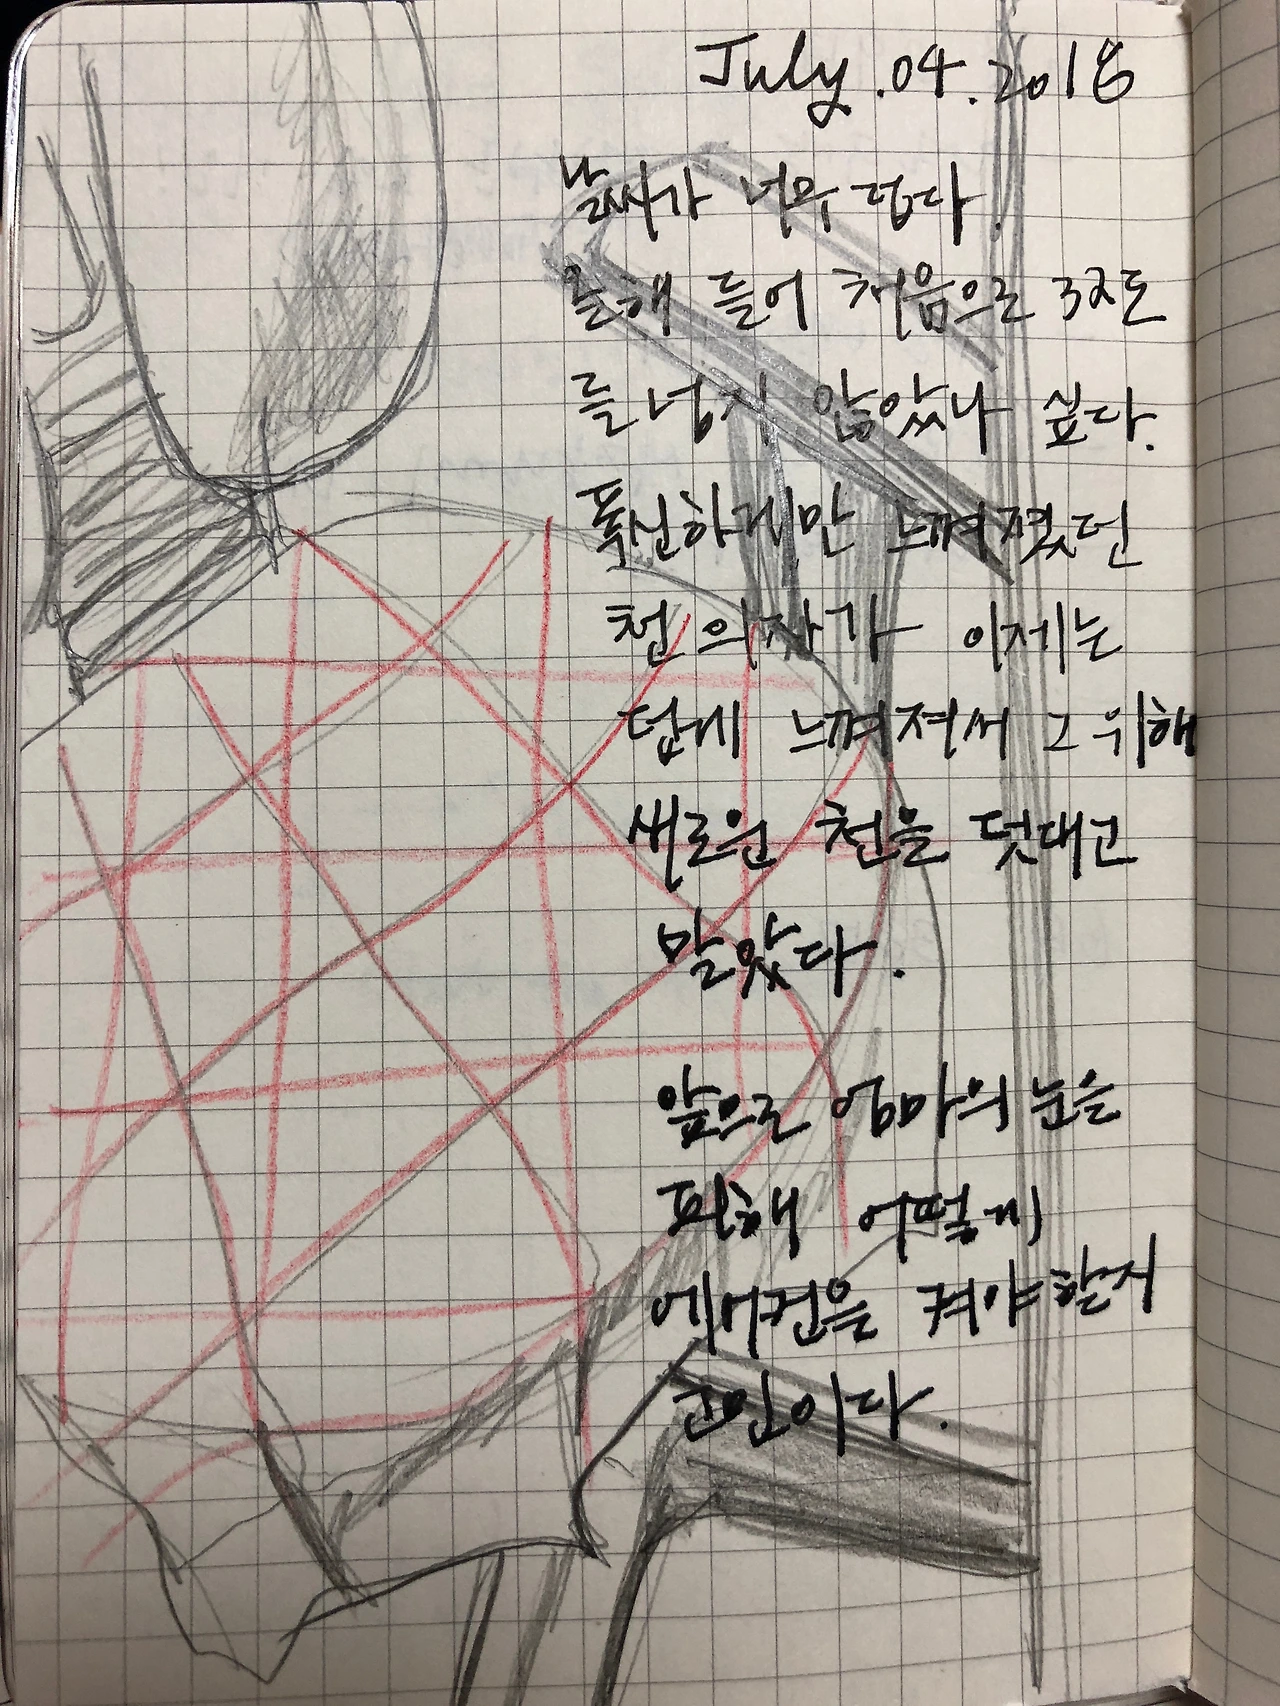 July.04.2018
날씨가 너무 덥다.
올해 들어 처음으로 32도
를 넘기 않았나 싶다.
푹신하게만 느껴졌던
천 의자가 이제는
덥게 느껴져서 그 위해
새로운 천을 덧대고
말았다.
앞으로 엄마의 눈을
피해 어떻게
에어컨을 켜야할지
고민이다.